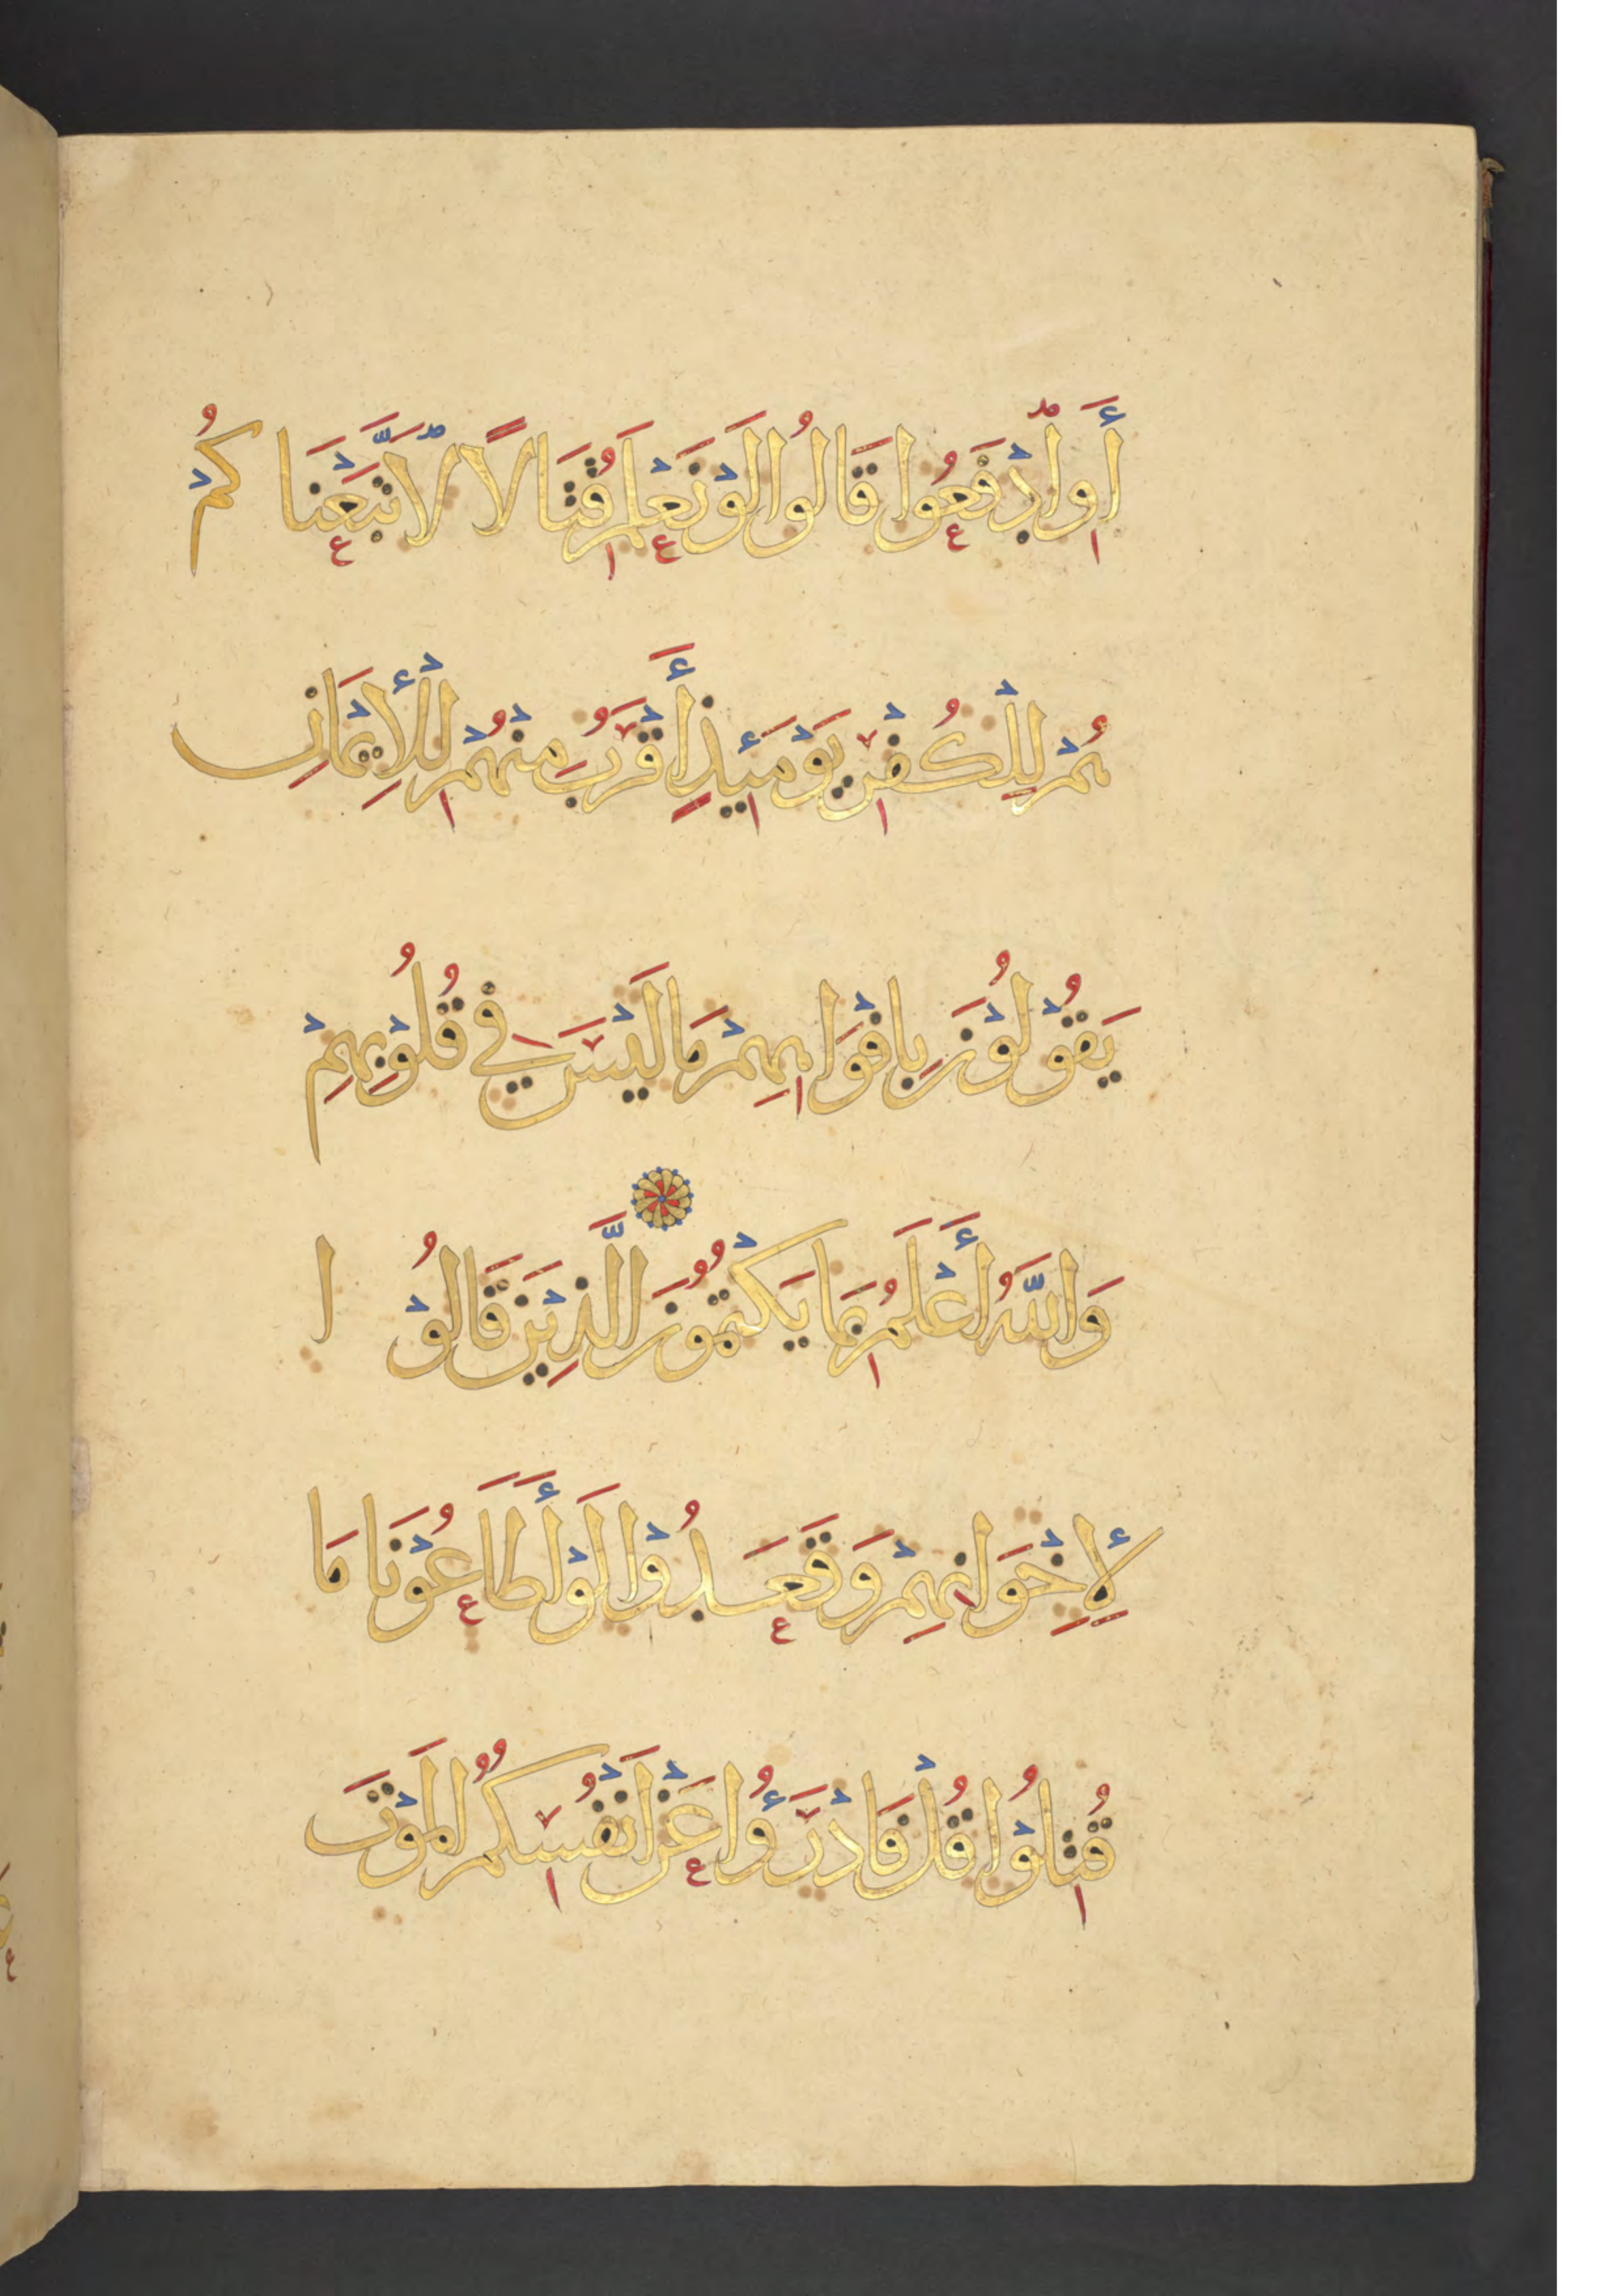 أَوِ ادْفَعُوا قَالُوا لَوْ نَعْلَمُ قِتَالًا لَّاتَّبَعْنَا كُمْ
هُمْ لِلْكُفْرِ يَوْمَئِذٍ أَقْرَبُ مِنْهُمْ لِلْإِيمَانِ
يَقُوْلُوْنَ بِافْوَاهِهِمْ مَا لَيْسَ فِي قُلُوْبِهِمْ
وَاللّٰهُ أَعْلَمُ بِمَا يَكْتُمُوْنَ الَّذِيْنَ قَالُوْ ا
لِإِخْوَانِهِمْ وَقَعَدُوْا لَوْ أَطَاعُوْنَا مَا
قُتِلُوْا قُلْ فَادْرَءُوا عَنْ انْفُسِكُمُ الْمَوْتَ